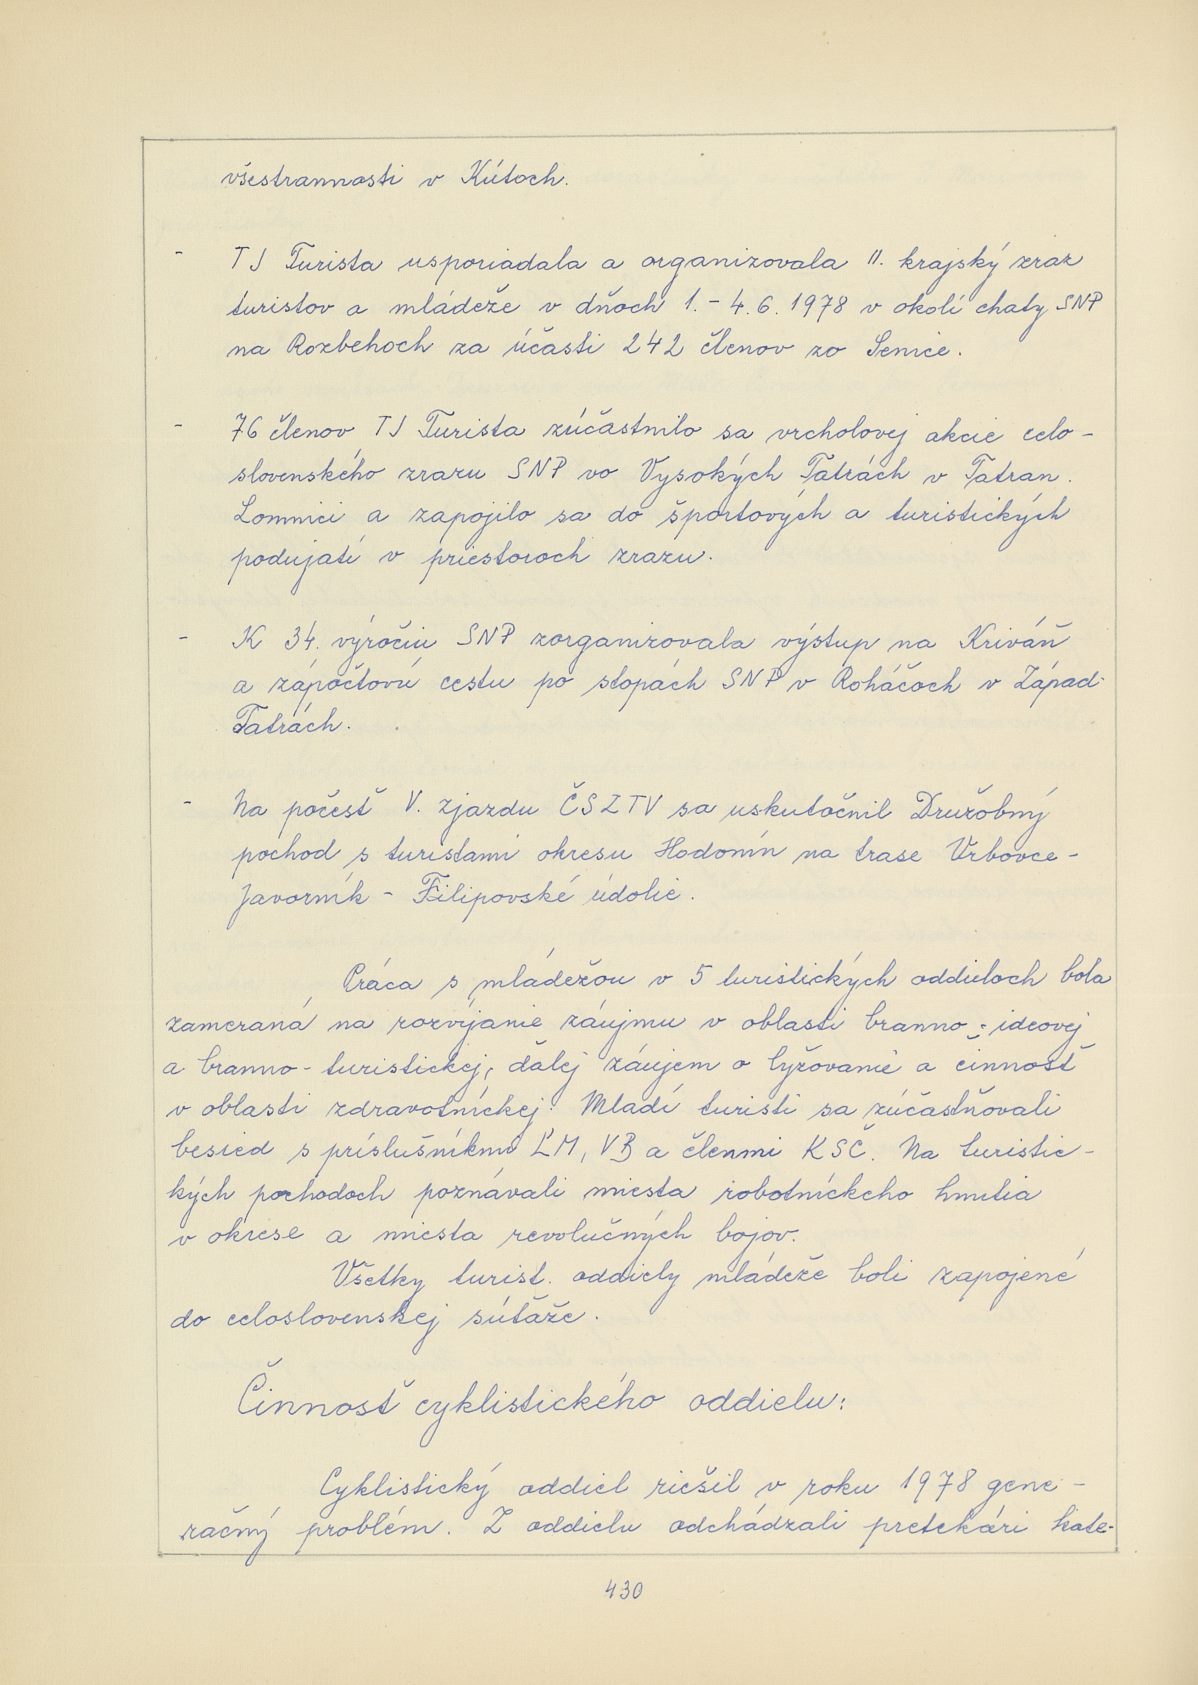 všestrannosti v Kútoch.
- TJ Turista usporiadala a organizovala II. krajský zraz
turistov a mládeže v dňoch 1. - 4. 6. 1978 v okolí chaty SNP
na Rozbehoch za účasti 242 členov zo Senice.
- 76 členov TJ Turista zúčastnilo sa vrcholovej akcie celo-
slovenského zrazu SNP vo Vysokých Tatrách v Tatran.
Lomnici a zapojilo sa do športových a turistických
podujatí v priestoroch zrazu.
- K 34. výročiu SNP zorganizovala výstup na Kriváň
a zápočtovú cestu po stopách SNP v Roháčoch v Západ.
Tatrách.
- Na počesť V. zjazdu ČSZTV sa uskutočnil Družobný
pochod s turistami okresu Hodonín na trase Vrbovce -
Javorník - Filipovské údolie.
Práca s mládežou v 5 turistických oddieloch bola
zameraná na rozvíjanie záujmu v oblasti branno - ideovej
a branno - turistickej, ďalej záujem o lyžovanie a činnosť
v oblasti zdravotníckej. Mladí turisti sa zúčastňovali
besied s príslušníkmi ĽM, VB a členmi KSČ. Na turistic-
kých pochodoch poznávali miesta robotníckeho hnutia
v okrese a miesta revolučných bojov.
Všetky turist. oddiely mládeže boli zapojené
do celoslovenskej súťaže.
Činnosť cyklistického oddielu:
Cyklistický oddiel riešil v roku 1978 gene-
račný problém. Z oddielu odchádzali pretekári kate-
430